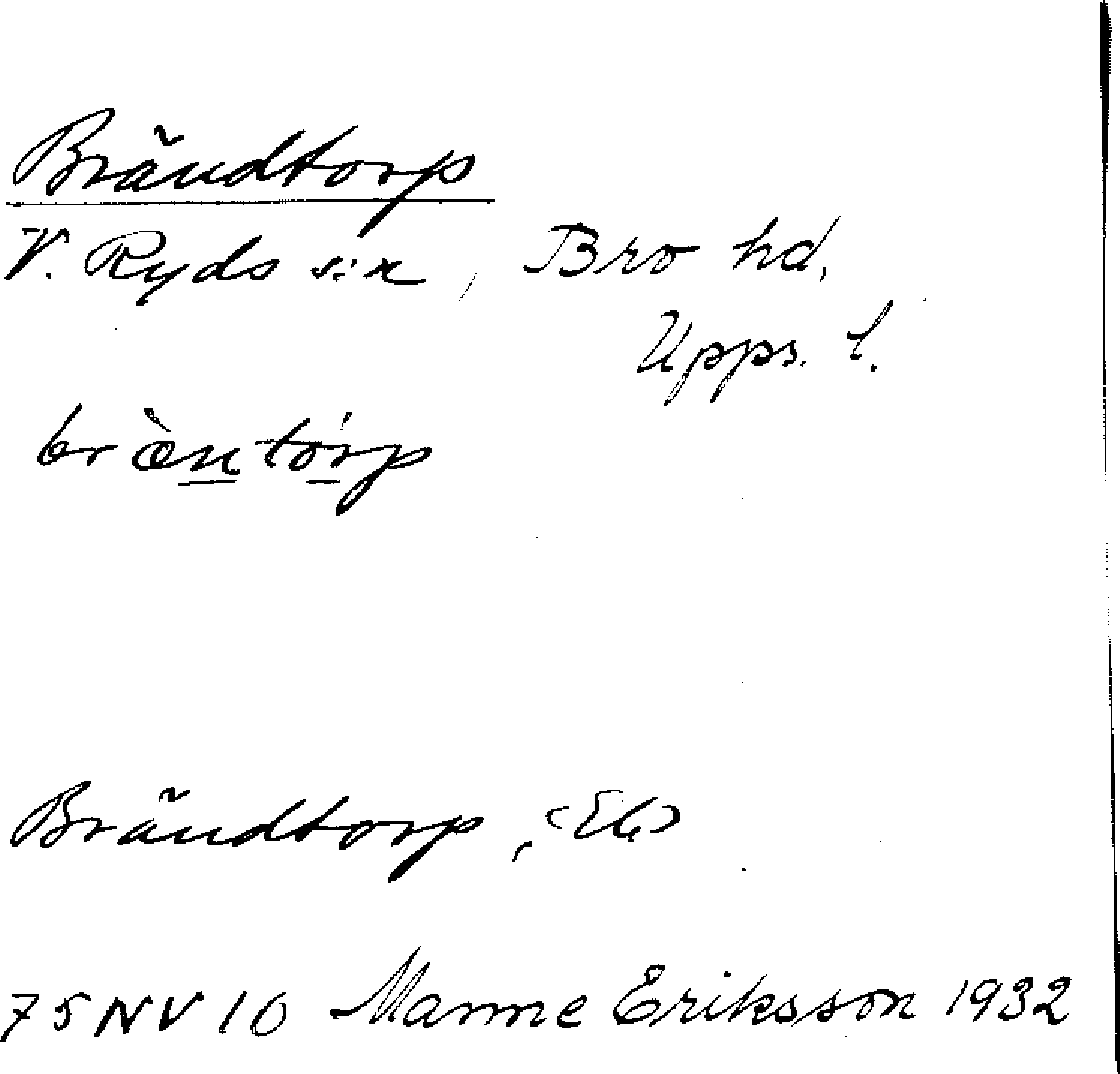 Brändtorp
V. Ryds sn, Bro hd,
Upps. l.
bræ̀ntórp
Brändtorp,
75 NV 10 Manne Eriksson 1932